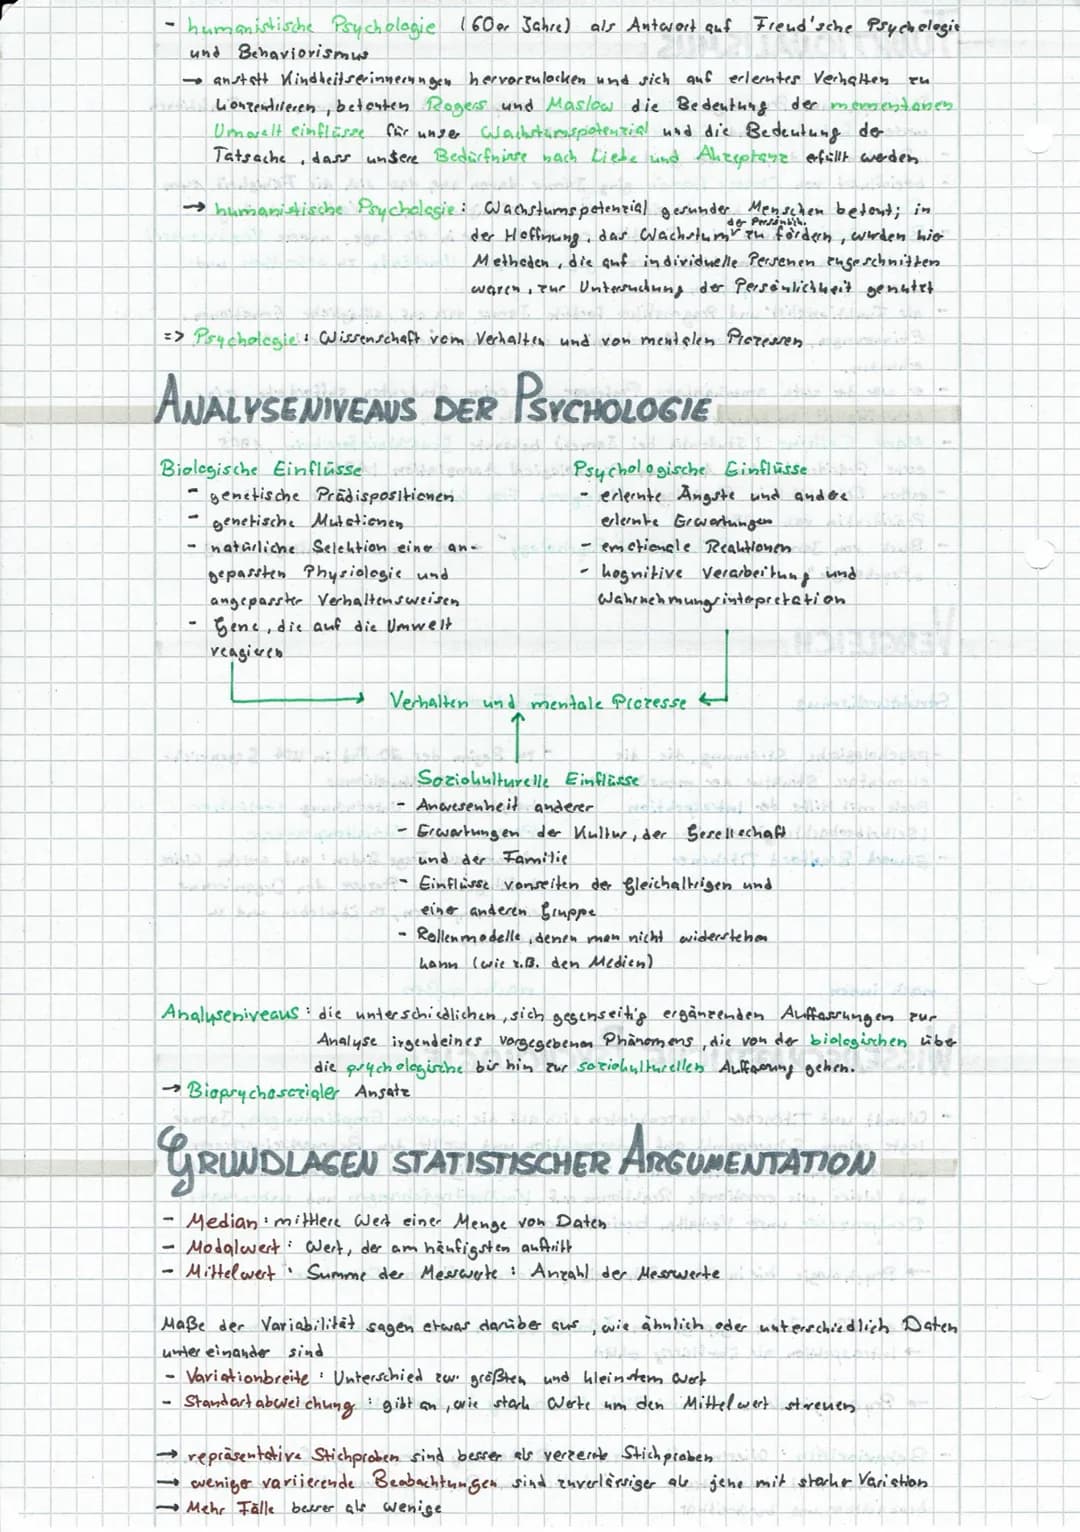 - humanistische Psychologie (60er Jahre) als Antwort auf Freud'sche Psychologie
und Behaviorismus
→ anstatt Kindheitserinnerungen hervorzulocken und sich auf erlerntes Verhalten zu
konzentrieren, betonten Rogers und Maslow die Bedeutung der momentanen
Umwelteinflüsse für unser Wachstumspotenzial und die Bedeutung der
Tatsache, dass unsere Bedürfnisse nach Liebe und Akzeptanz erfüllt werden
→ humanistische Psychologie: Wachstumspotenzial gesunder Menschen betont; in
der Hoffnung, das Wachstum der Persönlich. zu fördern, wurden hier
Methoden, die auf individuelle Personen zugeschnitten
waren, zur Untersuchung der Persönlichkeit genutzt
=> Psychologie: Wissenschaft vom Verhalten und von mentalen Prozessen
ANALYSENIVEAUS DER PSYCHOLOGIE
Biologische Einflüsse
- genetische Prädispositionen
- genetische Mutationen
- natürliche Selektion einer an-
gepassten Physiologie und
angepasster Verhaltensweisen
- Gene, die auf die Umwelt
reagieren
Psychologische Einflüsse
- erlernte Ängste und andere
erlernte Erwartungen
- emotionale Reaktionen
- kognitive Verarbeitung und
Wahrnehmungsintepretation
Verhalten und mentale Prozesse
Soziokulturelle Einflüsse
- Anwesenheit anderer
- Erwartungen der Kultur, der Gesellschaft
und der Familie
- Einflüsse vonseiten der Gleichaltrigen und
einer anderen Gruppe
- Rollenmodelle, denen man nicht widerstehen
kann (wie z.B. den Medien)
Analyseniveaus: die unterschiedlichen, sich gegenseitig ergänzenden Auffassungen zur
Analyse irgendeines vorgegebenen Phänomens, die von der biologischen über
die psychologische bis hin zur soziokulturellen Auffassung gehen.
→ Biopsychosozialer Ansatz
GRUNDLAGEN STATISTISCHER ARGUMENTATION
- Median: mittlere Wert einer Menge von Daten
- Modalwert: Wert, der am häufigsten auftritt
- Mittelwert: Summe der Messwerte : Anzahl der Messwerte
Maße der Variabilität sagen etwas darüber aus, wie ähnlich oder unterschiedlich Daten
untereinander sind
- Variationbreite: Unterschied zw. größten und kleinstem Wert
- Standartabweichung: gibt an, wie stark Werte um den Mittelwert streuen
→ repräsentative Stichproben sind besser als verzerrte Stichproben
→ weniger variierende Beobachtungen sind zuverlässiger als jene mit starker Variation
→ Mehr Fälle besser als wenige